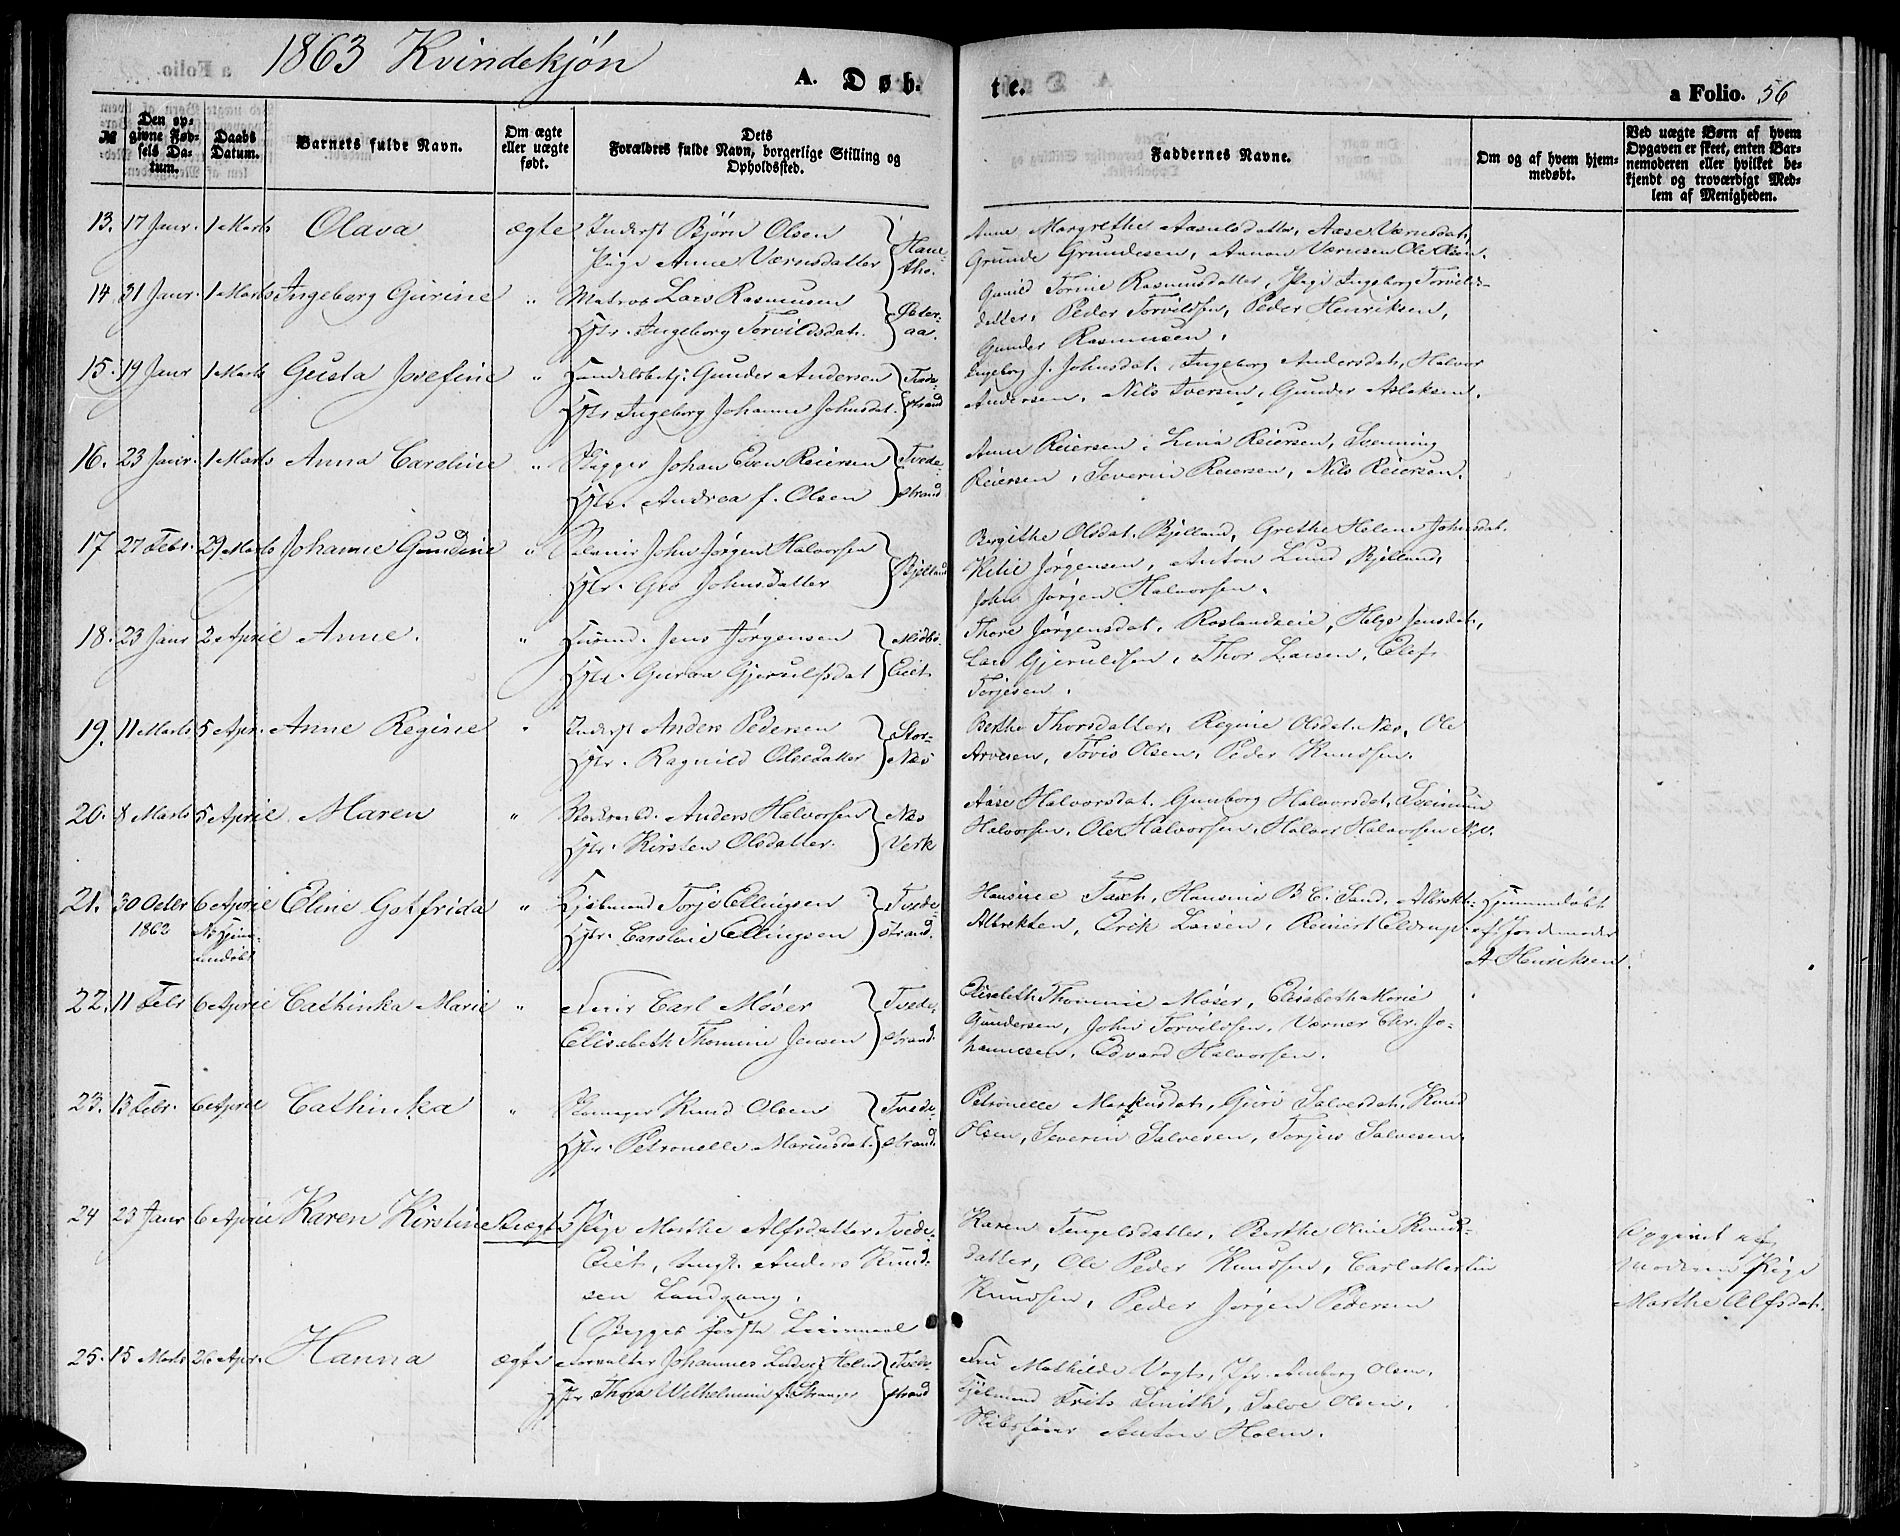 1863 Kvindekjøn
A. Døb-
te.
a Folio. 56
№
Den op-
givne Fød-
sels Da-
tum.
Daabs
Datum.
Barnets fulde Navn.
Om ægte
eller uægte
født.
Dets
Forældres fulde Navn, borgerlige Stilling og
Opholdssted.
Faddernes Navne.
Om og af hvem hjem-
medøbt.
Ved uægte Børn af hvem
Opgaven er skeet, enten Bar-
nemoderen eller hvilket be-
kjendt og troværdigt Med-
lem af Menigheden.
13. 17 Janr. 1 Marts Olava ægte Inderst Bjørn Olsen
Pige Anne Værnsdatter Hane-
tho.
Anne Margrethe Aasulsdatter, Aase Værnsdat,
Grunde Grundesen, Aanon Værnsen Ole Olsen.
14. 31 Janr. 1 Marts Ingeborg Gurine " Matros Lars Rasmusen
Hstr. Ingeborg Torvildsdat. Øster-
aa.
Gunild Torine Rasmusdatter, Pige Ingeborg Torvilds-
datter, Peder Torvildsen, Peder Henriksen,
Gunder Rasmusen.
15. 19 Janr 1 Marts Gusta Josefine " Handelsbetj. Gunder Andersen
Hstr Ingeborg Johanne Johnsdat. Tvede-
strand
Ingeborg J. Johnsdat. Ingeborg Andersdat, Halvor
Andersen, Nils Iversen, Gunder Aslaksen.
16. 23 Janr. 1 Marts Anna Caroline " Johan Even Reiersen
Hstr. Andrea f. Olsen Tvede-
strand
Anne Reiersen, Lina Reiersen, Svenning
Reiersen, Severin Reiersen, Nils Reiersen.
17 27 Febr. 29 Marts Johanne Gundine " John Jørgen Halvorsen
Hstr. Gro Johnsdatter Bjelland
Birgithe Olsdat. Bjelland, Grethe Helene Johnsdat.
Kitil Jørgensen, Anton Lund Bjelland,
John Jørgen Halvorsen.
18. 23 Janr 2 April Anne. " Huusmd. Jens Jørgensen
Hstr. Guroa Gjerulfsdat Midbø-
Eiet.
Thore Jørgensdat, Roslandseie, Helge Jensdat,
Lars Gjeruldsen, Thor Larsen, Elef
Torjesen.
19. 11 Marts 5 Apr. Anne Regine " Inderst Anders Pedersen
Hstr. Ragnild Olsdatter Stor-
Næs
Berthe Thorsdatter, Regine Olsdat. Næs, Ole
Arvesen, Tovis Olsen, Peder Knudsen.
20. 8 Marts 5 April Maren " Anders Halvorsen
Hstr. Kirsten Olsdatter. Næs
Verk
Aase Halvorsdat. Gunborg Halvorsdat,
Halvorsen, Ole Halvorsen, Halvor Halvorsen N.V.
21. 30 Octbr 6 April Eline Gotfrida " Kjøbmand Torje Ellingsen
1862 Hstr. Caroline Ellingsen Tvede-
strand.
Hansine Taxt, Hansine B. C. Sand, Albrekt
Albrektsen, Erik Larsen, Reinert Eldrup.
Hjemmedøbt
af Jordemoder
A Henriksen.
22. 11 Febr 6 April Cathinka Marie " Carl Møser
Elisabeth Thomine Jensen Tvede-
strand.
Elisabeth Thomine Møser, Elisabeth Marie
Gundersen, John Torvildsen, Værner Chr. Jo-
hannesen, Edvard Halvorsen.
23. 13 Febr. 6 April Cathinka " Knud Olsen
Hstr. Petronelle Marcusdat. Tvede-
strand.
Petronelle Markusdat, Guri Salvesdat, Knud
Olsen, Severin Salvesen, Torjus Salvesen.
24 23 Janr 6 April Karen Kirstine Uægte Pige Marthe Alfsdatter Tvede-
Eiet, Ungk. Anders Knud-
sen Landgang.
(Begges første Leiermaal
Karen Tengelsdatter, Berthe Oline Knuds-
datter, Ole Peder Knudsen, Carl Martin
Knudsen, Peder Jørgen Pedersen
Opgivet af
Moderen Pige
Marthe Alfsdat.
25. 15 Marts 26 Apr. Hanna ægte Forvalter Johannes Ludvig Holm
Hstr Thora Wilhelmine f. Stranger Tvede-
strand
Fru Mathilde Vogt, Jfr. Amborg Olsen,
Kjøbmand Frits Smith, Salve Olsen,
Skibsfører Anton Holm.